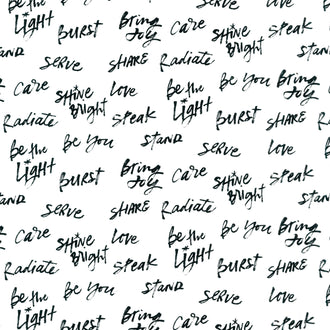 Be the
LIGHT
BURST
Bring
Joy
Care
SERVE
SHINE
BRIGHT
SPEAK
SERVE
SHARE
Radiate
Care
SHINE
BRIGHT
Love
Be the
LIGHT
Be You
Bring
Joy
Radiate
SPEAK
BURST
SHARE
Be the
LIGHT
Be You
STAND
SERVE
Love
BURST
Bring
Joy
Care
SHINE
BRIGHT
SPEAK
SERVE
SHARE
Radiate
Care
SHINE
BRIGHT
Love
Be the
LIGHT
Be You
Bring
Joy
Radiate
SPEAK
BURST
SHARE
Be the
LIGHT
Be You
STAND
SERVE
Love
BURST
Bring
Joy
Care
SHINE
SPEAK